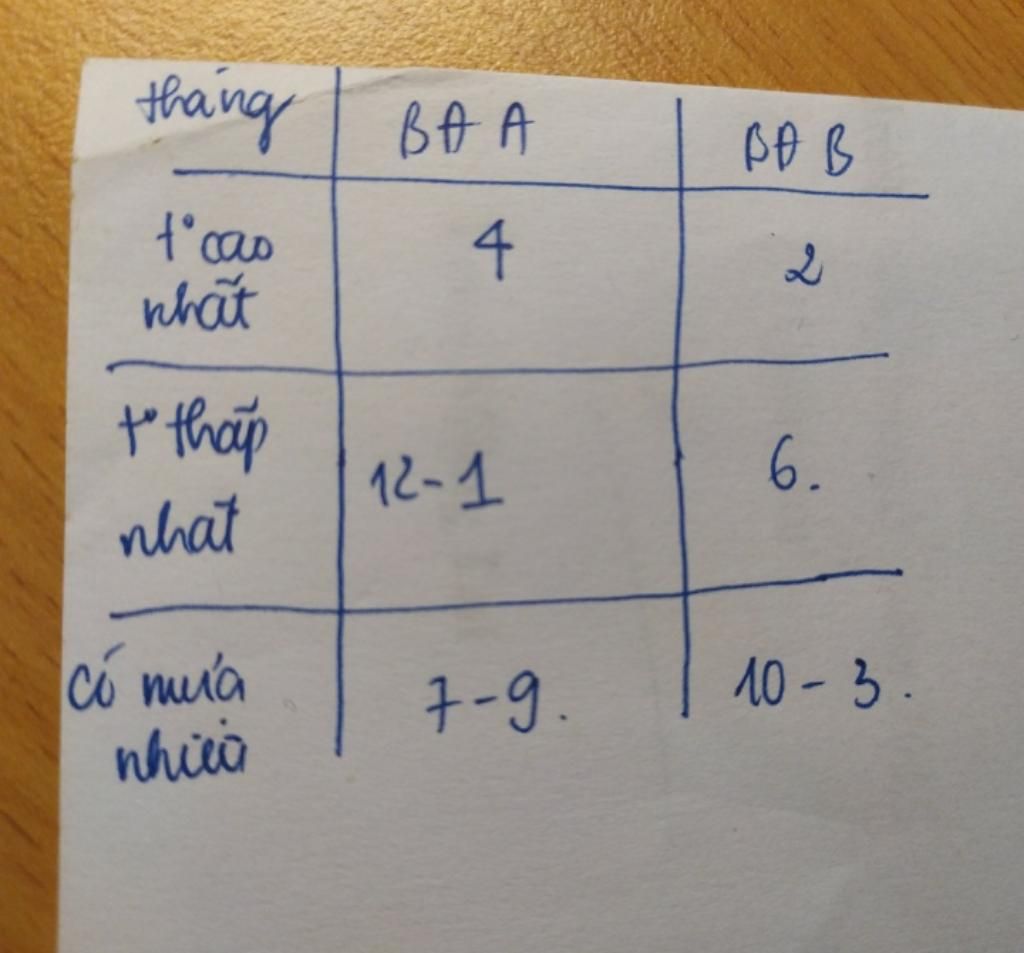 tháng BĐ A BĐ B
t° cao 4 2
nhất
t° thấp
nhất 12-1 6.
có mưa 7-9. 10-3.
nhiều